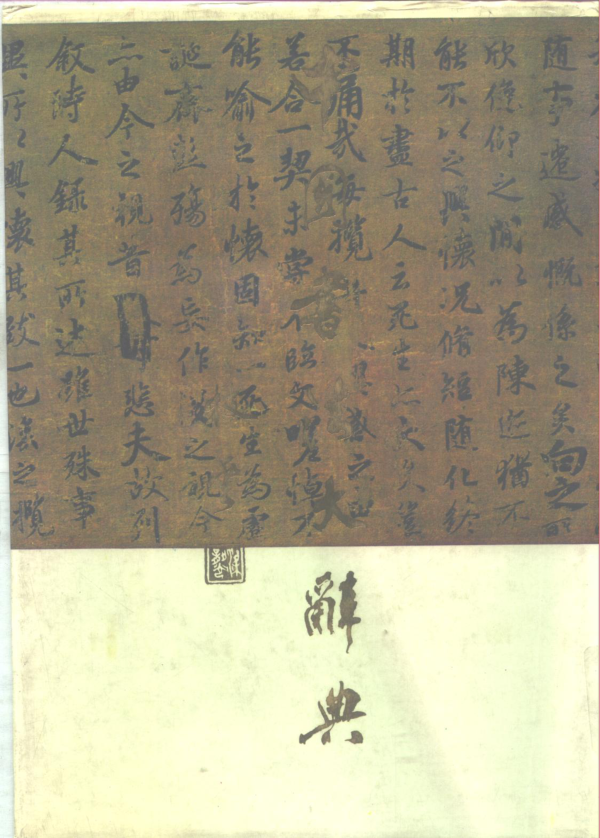 随事遷感慨係之矣向之所
欣俛仰之閒以為陳迹猶不
能不以之興懷況脩短随化終
期於盡古人云死生亦大矣豈
不痛哉每攬昔興感之由
若合一契未嘗不臨文嗟悼不
能喻之於懷固知一死生為虛
誕齊彭殤為妄作後之視今
亦由今之視昔悲夫故列
敘時人錄其所述雖世殊事
異所以興懷其致一也後之攬
中國書法大
辭典